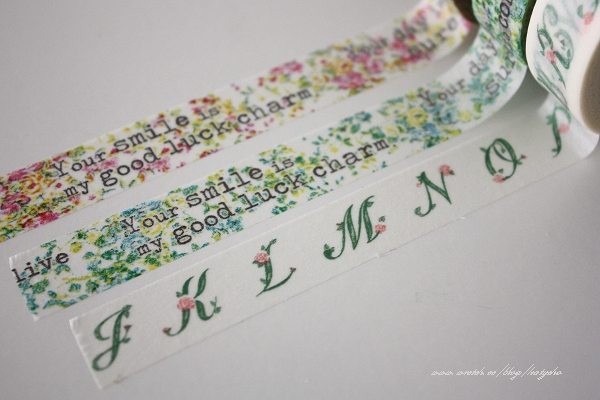 Your smile is
my good luck charm
Your day
live
Your smile is
my good luck charm
Your day
J K L M N O P